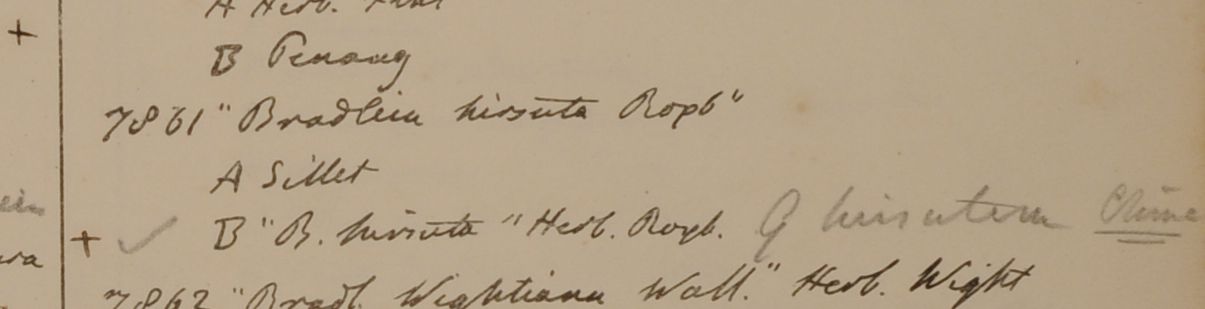 A Herb.
B Penang
7861 "Bradleia hirsuta Roxb"
A Sillet
+ ✓ B "B. hirsuta" Herb. Roxb. G hirsutum China
7862 "Bradl. Wightiana Wall." Herb. Wight